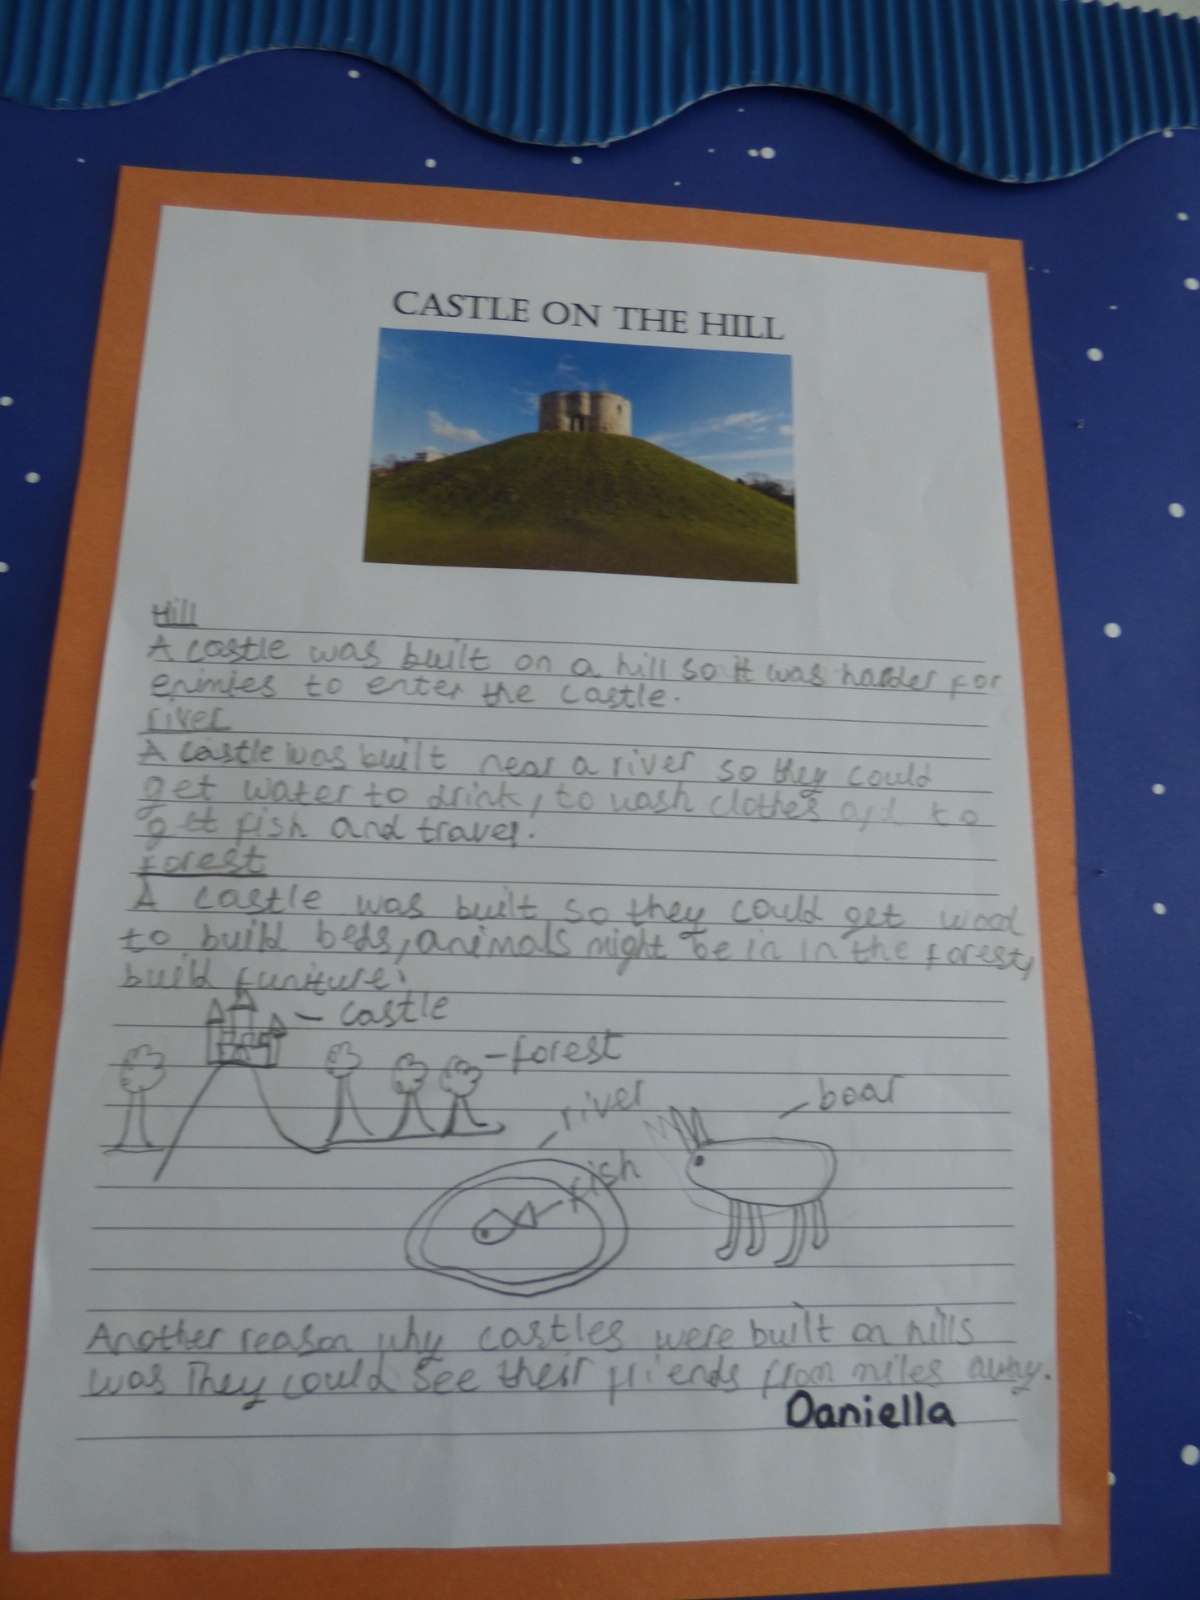 CASTLE ON THE HILL
Hill
A castle was built on a hill so it was harder for
enimies to enter the castle.
river
A castle was built near a river so they could
get water to drink, to wash clothes and to
get fish and travel.
forest
A castle was built so they could get wood
to build beds, animals might be in in the forest,
build funiture.
castle
forest
river
boar
fish
Another reason why castles were built on hills
was They could see their friends from miles away.
Daniella